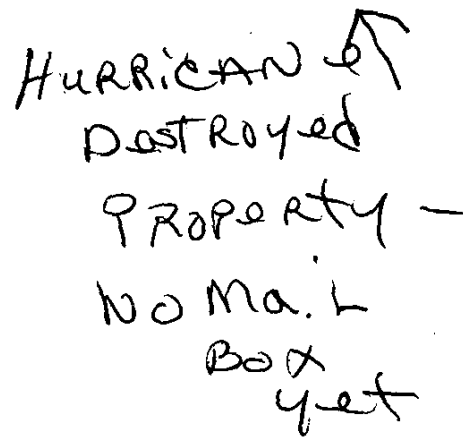 HURRiCANe
DestRoyed
PROPeRty -
No Mail
Box
yet